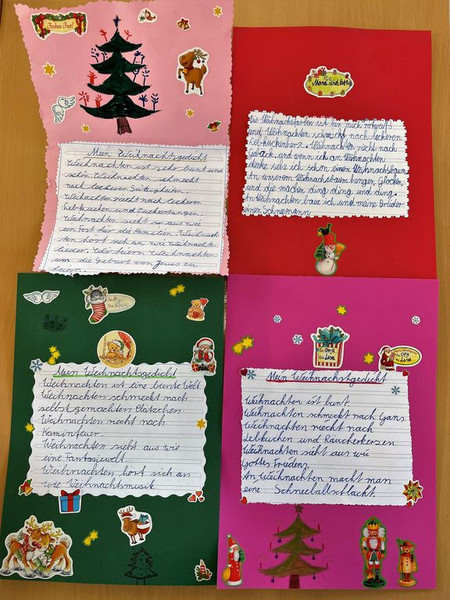 Frohes Fest!
Mein Weihnachtsgedicht
Weihnachten ist sehr bunt und
schön. Weihnachten schmeckt
nach leckeren Süßigkeiten.
Weihnachten riecht nach leckeren
Lebkuchen und Zuckerstangen.
Weihnachten sieht aus wie
ein Fest für die Familie. Weihnach-
ten hört sich an wie Weihnachts-
lieder. Wir feiern Weihnachten
um die Geburt von Jesus zu
feiern.
Mama und
Weihnachten ist für mich
und Weihnachten schmeckt nach leckeren
Lebkuchenherz. Weihnachten riecht nach
Gebäck, und wenn ich an Weihnachten
denke sehe ich schon einen Weihnachtsbaum.
An unserem Weihnachtsbaum hängen Glocken,
und die machen ding ding und ding.
An Weihnachten baue ich und meine Brüder
einen Schneemann.
Mein Weihnachtsgedicht
Weihnachten ist eine bunte Welt.
Weihnachten schmeckt nach
selbst gemachten Plätzchen.
Weihnachten riecht nach
Kaminfeuer.
Weihnachten sieht aus wie
eine Fantasiewelt.
Weihnachten hört sich an
wie Weihnachtsmusik.
Opa
Lora
Opa
Lora
Mein Weihnachtsgedicht
Weihnachten ist bunt.
Weihnachten schmeckt nach Gans.
Weihnachten riecht nach
Lebkuchen und Räucherkerzen
Weihnachten sieht aus wie
Gottes Frieden.
An Weihnachten macht man
eine Schneeballschlacht.